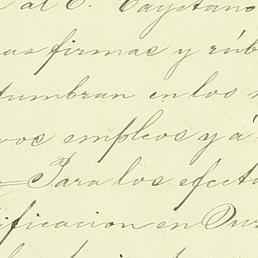 al C. Cayetano
las firmas y rúb
tumbran en los
vos empleos y á
= Para los efect
ificacion en Dur